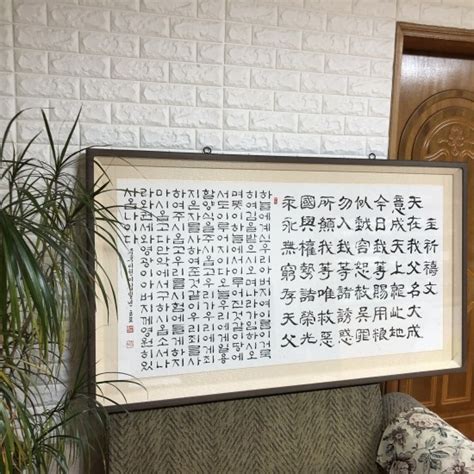 主祈禱文
天在我父名大成
意成天上此地
今日我等賜用糧
似我恕罪
勿入我等諸誘惑
所願我等唯救惡
國與權勢榮光
永永無窮存天父
하늘에계신우리아버지여이름이거룩
히여김을받으시오며나라이임하옵시
며뜻이하늘에서이룬것같이땅에
서도이루어지이다오늘날우리에게일용
할양식을주옵시고우리가우리에게죄
지은자를사하여준것같이우리죄를사
하여주시옵고우리를시험에들게하지
마시옵고다만악에서구하옵소서나
라와권세와영광이아버지께영원히있
사옵나이다